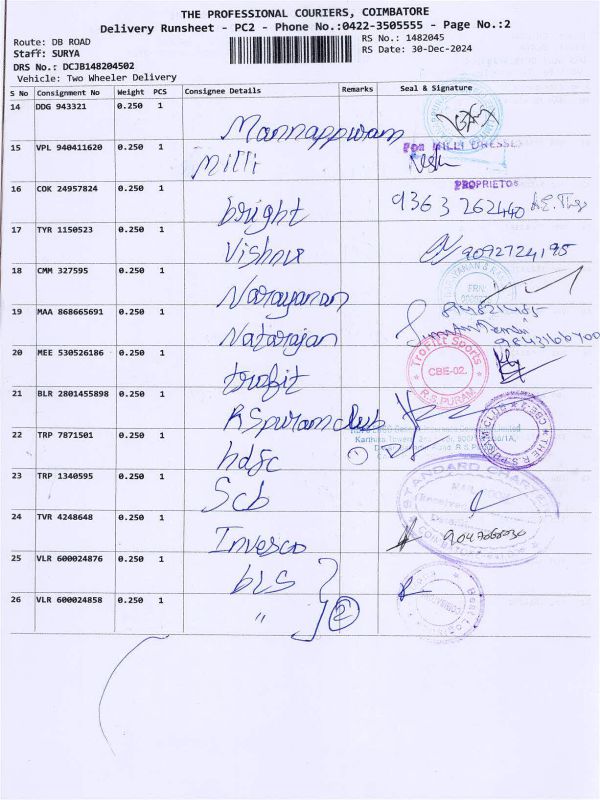 THE PROFESSIONAL COURIERS, COIMBATORE
Delivery Runsheet - PC2 - Phone No.:0422-3505555 - Page No.:2
Route: DB ROAD RS No.: 1482045
Staff: SURYA RS Date: 30-Dec-2024
DRS No.: DCJB148204502
Vehicle: Two Wheeler Delivery
S No Consignment No Weight PCS Consignee Details Remarks Seal & Signature
14 DDG 943321 0.250 1
Mannappuram
15 VPL 940411620 0.250 1 FOR MILLI DRESSES
Milli
16 COK 24957824 0.250 1 PROPRIETOR
bright 9363 262440
17 TYR 1150523 0.250 1
Vishnu 9092724195
18 CMM 327595 0.250 1
Narayanan
19 MAA 868665691 0.250 1
Natarajan
20 MEE 530526186 0.250 1 Trofitt Sports
trofit CBE-02.
R.S.PURAM
21 BLR 2801455898 0.250 1
RSpuram club
22 TRP 7871501 0.250 1
hdfc
23 TRP 1340595 0.250 1 STANDARD CHARTE
Scb
24 TVR 4248648 0.250 1
Invesco
25 VLR 600024876 0.250 1
bls
26 VLR 600024858 0.250 1
" 2